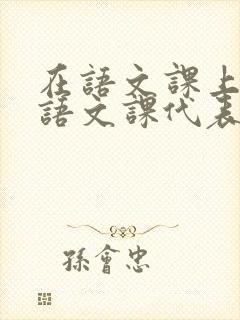 在語文課上
語文課代表
孫會忠